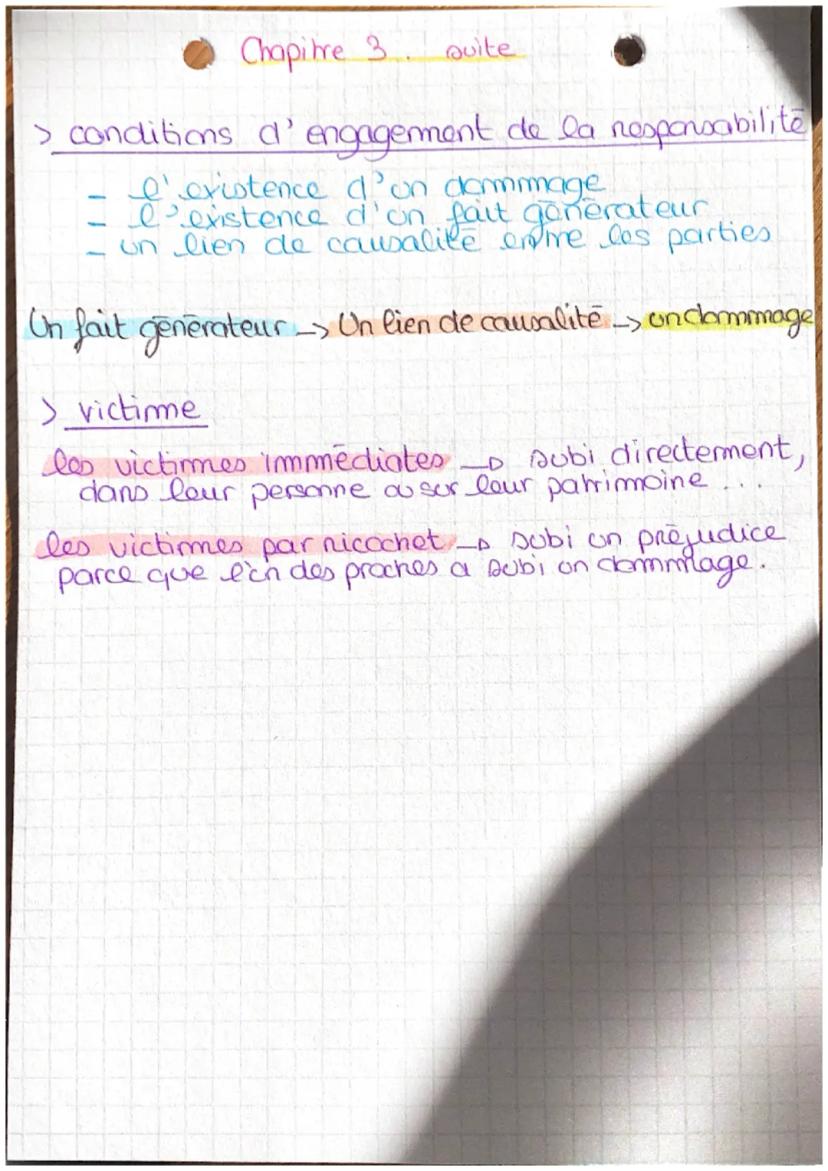 Chapitre 3. suite
> conditions d'engagement de la responsabilité
- l'existence d'un dommage
- l'existence d'un fait générateur
- un lien de causalité entre les parties
Un fait générateur -> Un lien de causalité -> un dommage
> victime
les victimes immédiates -> subi directement,
dans leur personne ou sur leur patrimoine ...
les victimes par ricochet -> subi un préjudice
parce que l'un des proches a subi un dommage.